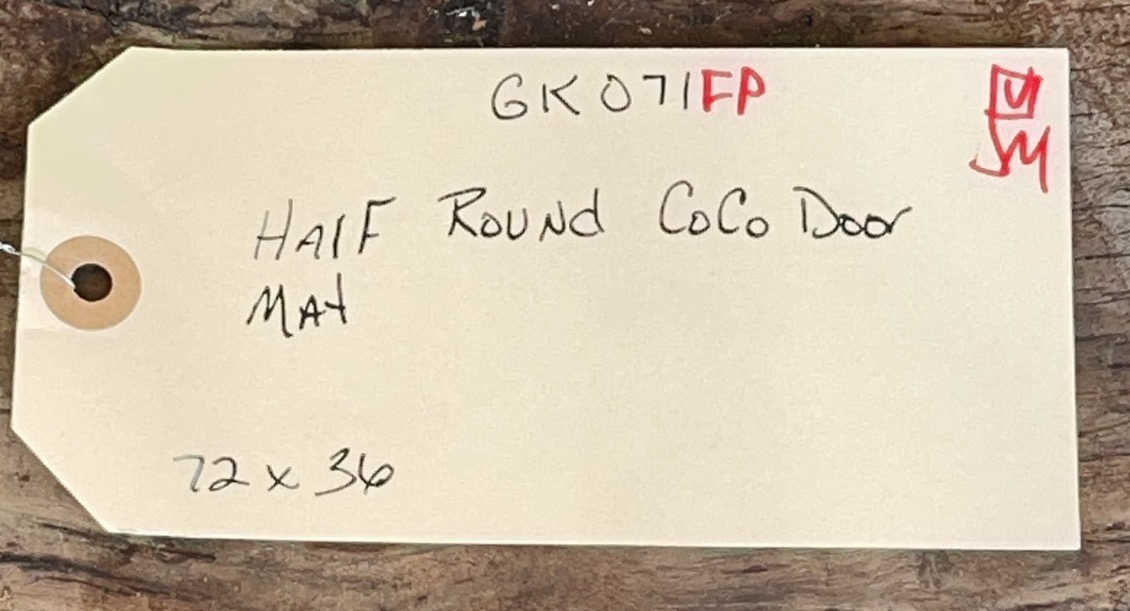 GK071FP
HAlF ROUNd CoCo Door
MAt
72 x 36